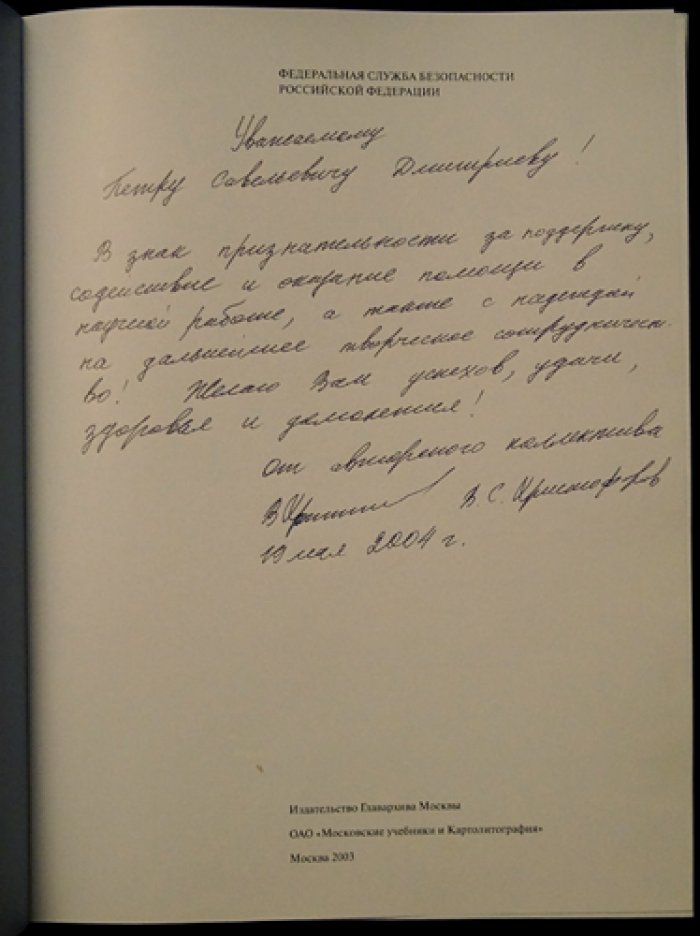 ФЕДЕРАЛЬНАЯ СЛУЖБА БЕЗОПАСНОСТИ
РОССИЙСКОЙ ФЕДЕРАЦИИ
Уважаемому
Петру Савельевичу Дмитриеву!
В знак признательности за поддержку,
содействие и оказание помощи в
научной работе, а также с надеждой
на дальнейшее творческое сотрудничест-
во! Желаю Вам успехов, удачи,
здоровья и долголетия!
От авторского коллектива
В. С. Христофоров
19 мая 2004 г.
Издательство Главархива Москвы
ОАО «Московские учебники и Картолитография»
Москва 2003